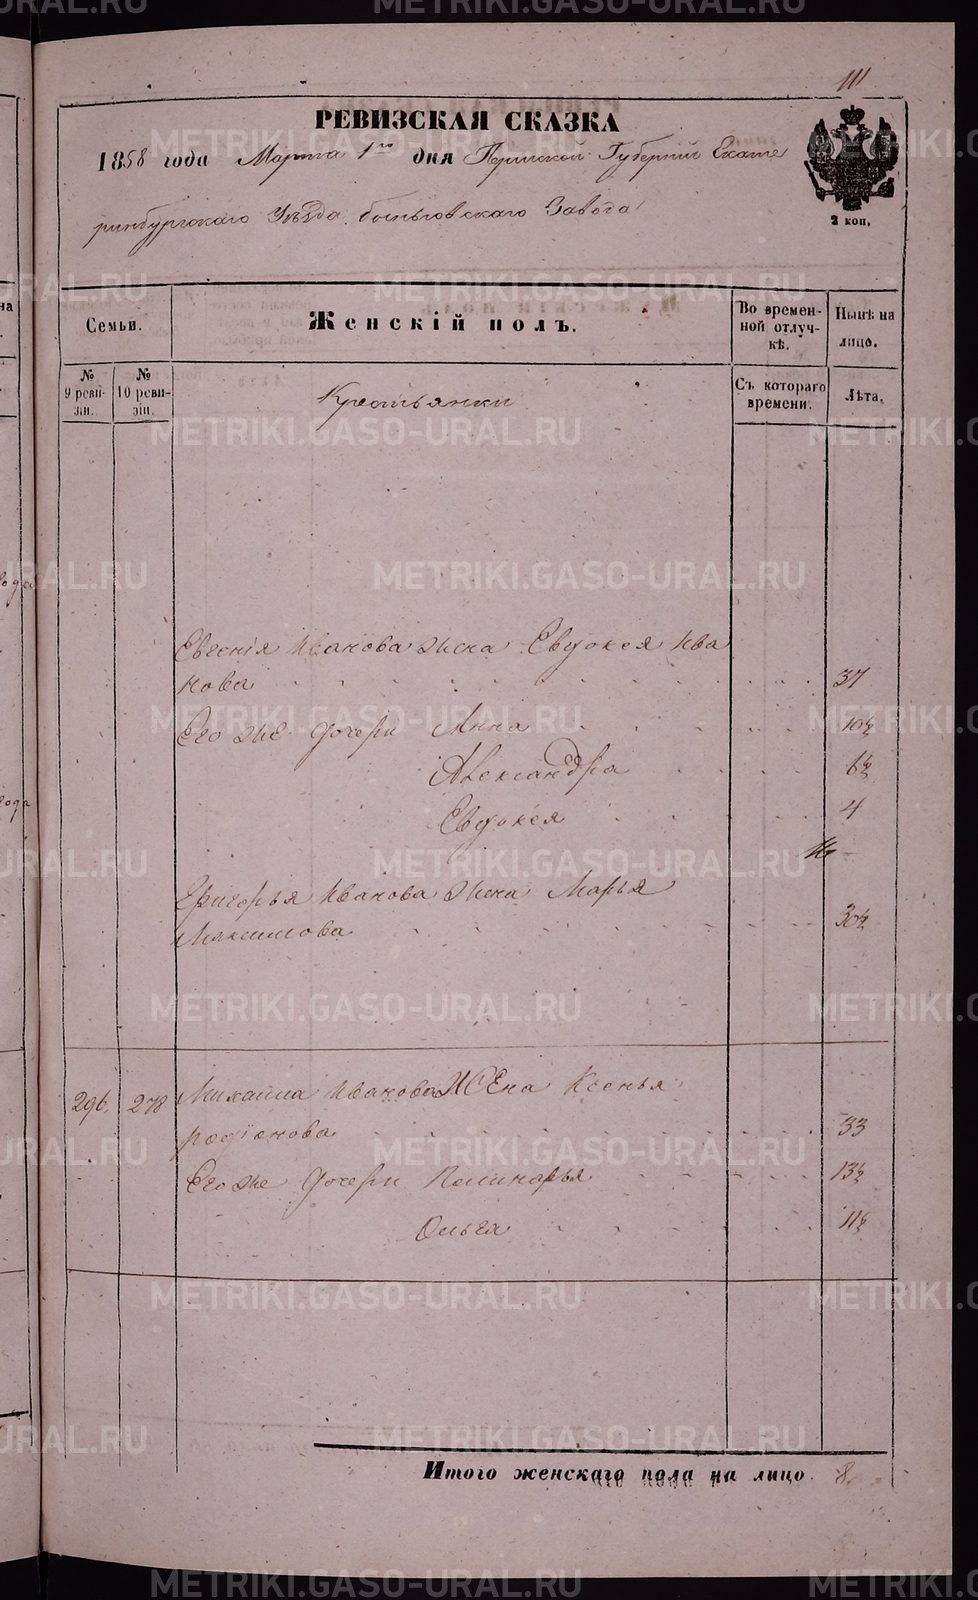 111
РЕВИЗСКАЯ СКАЗКА
1858 года Марта 1го дня Пермской Губернiи Екате
ринбургскаго Уѣзда Завода
2 коп.
Семьи.
Женскiй полъ.
Во времен-
ной отлуч-
кѣ.
Нынѣ на
лицо.
№
9 реви-
зiи.
№
10 реви-
зiи.
Съ котораго
времени.
Лѣта.
Крестьянки
Евгенiя Иванова жена Евдокея Ива
нова 37
Его же дочери Анна 10½
Александра 6½
Евдокея 4
Григорья Иванова жена Марья
Максимова 30½
296. 278 Михайла Иванова жена Ксенья
родiонова 33
Его же дочери Палинарья 13½
Ольга 11½
Итого женскаго пола на лицо. 8
METRIKI.GASO-URAL.RU